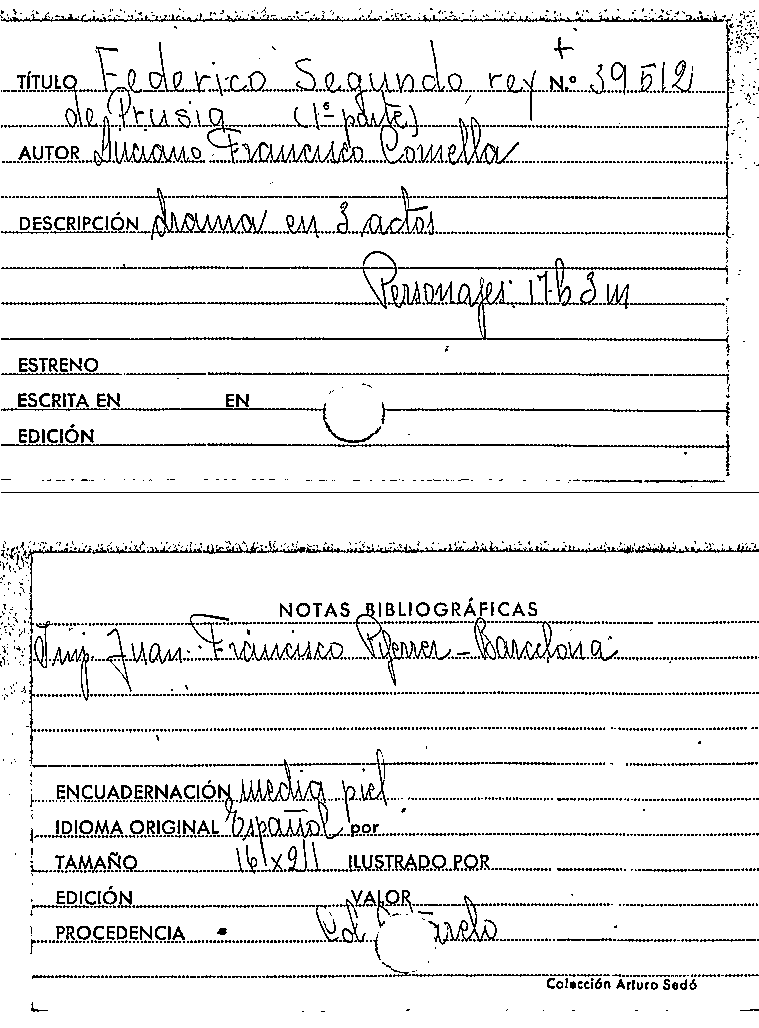 TÍTULO Federico Segundo rey N.º 39512
de Prusia (1ª parte)
AUTOR Luciano Francisco Comella
DESCRIPCIÓN drama en 3 actos
Personajes: 17 h 3 m
ESTRENO
ESCRITA EN EN
EDICIÓN
NOTAS BIBLIOGRÁFICAS
Imp. Juan Francisco Piferrer - Barcelona
ENCUADERNACIÓN media piel
IDIOMA ORIGINAL Español por
TAMAÑO 16 x 21 ILUSTRADO POR
EDICIÓN VALOR
PROCEDENCIA
Colección Arturo Sedó